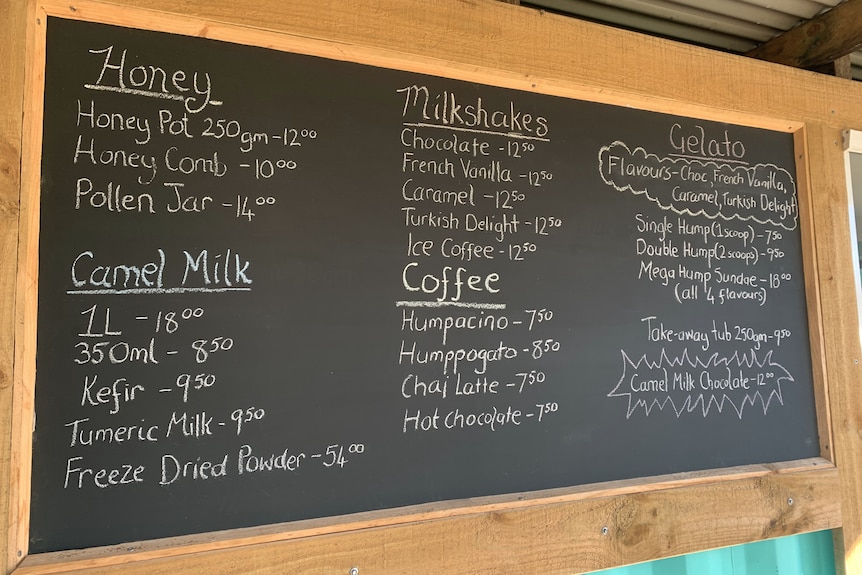 Honey
Honey Pot 250gm - 12⁰⁰
Honey Comb - 10⁰⁰
Pollen Jar - 14⁰⁰
Camel Milk
1L - 18⁰⁰
350ml - 8⁵⁰
Kefir - 9⁵⁰
Tumeric Milk - 9⁵⁰
Freeze Dried Powder - 54⁰⁰
Milkshakes
Chocolate - 12⁵⁰
French Vanilla - 12⁵⁰
Caramel - 12⁵⁰
Turkish Delight - 12⁵⁰
Ice Coffee - 12⁵⁰
Coffee
Humpacino - 7⁵⁰
Humppogato - 8⁵⁰
Chai Latte - 7⁵⁰
Hot chocolate - 7⁵⁰
Gelato
Flavours - Choc, French Vanilla,
Caramel, Turkish Delight
Single Hump (1 scoop) - 7⁵⁰
Double Hump (2 scoops) - 9⁵⁰
Mega Hump Sundae - 18⁰⁰
(all 4 flavours)
Take-away tub 250gm - 9⁵⁰
Camel Milk Chocolate - 12⁰⁰